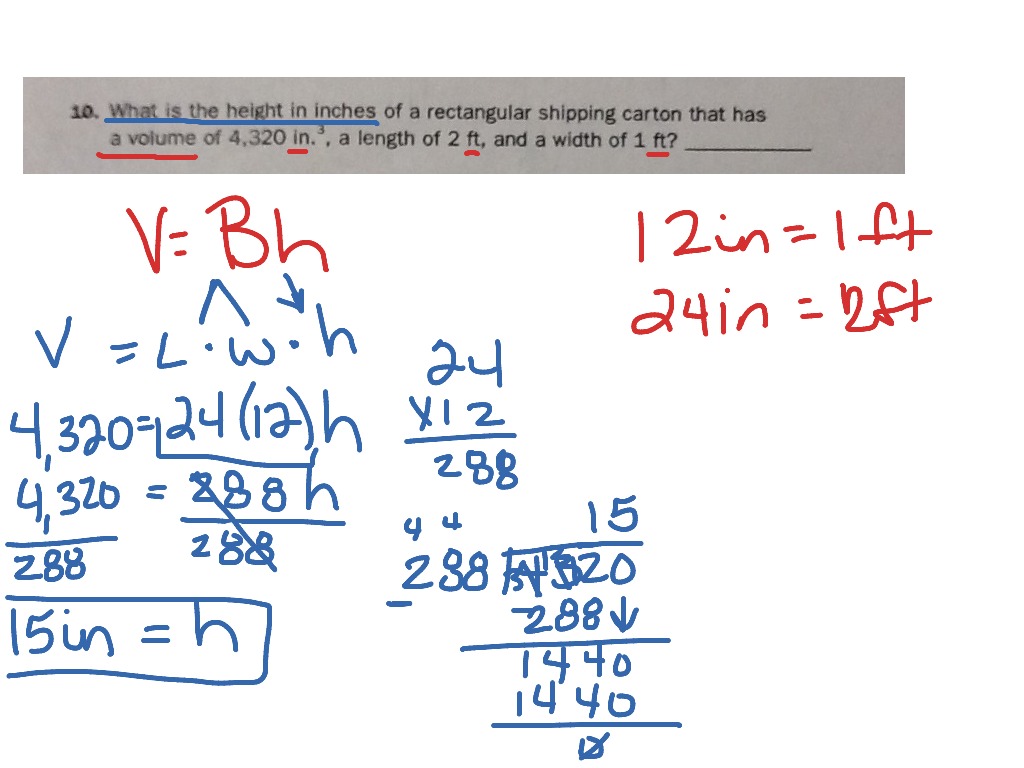 10. What is the height in inches of a rectangular shipping carton that has
a volume of 4,320 in.³, a length of 2 ft, and a width of 1 ft? __________
V = Bh
12in = 1ft
24in = 2ft
V = L · w · h
4,320 = 24(12)h
4,320 = 288h
288 288
15in = h
24
x12
288
15
4 4
288 4320
-288↓
1440
1440
0